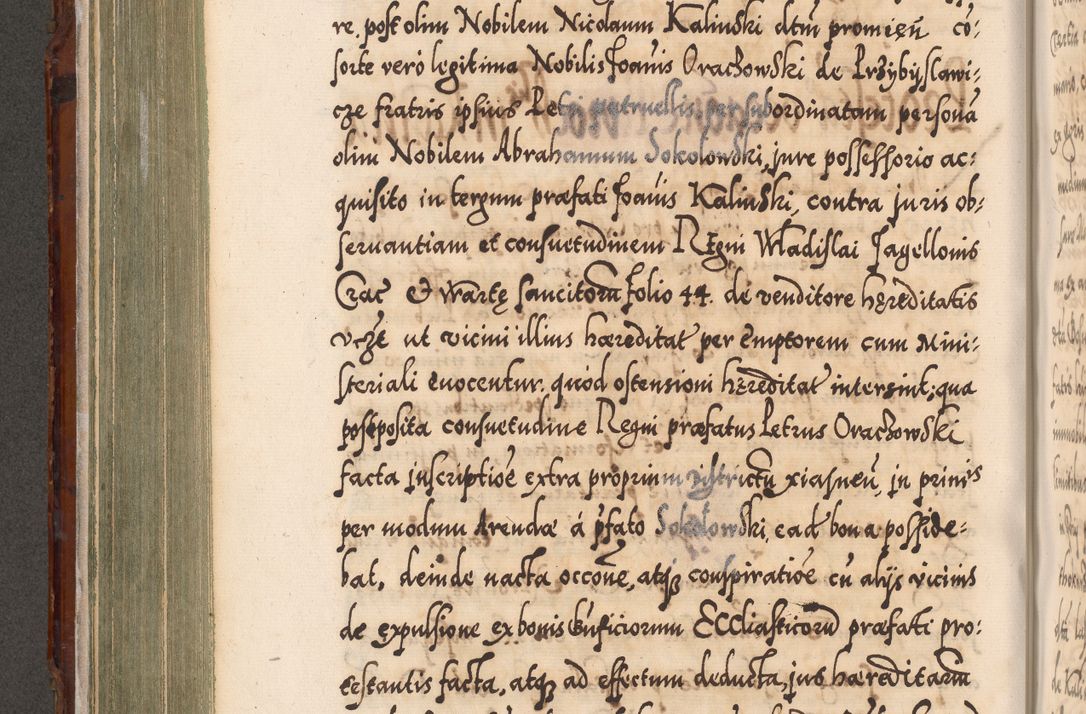 re. post olim Nobilem Nicolaum Kalinski dictū promissū cō:
sorte vero legitima Nobilis Joānis Orachowski de Przybyslawi:
cze fratris ipsius Petri patruellis, per subordinatam personā
olim Nobilem Abrahamum Sokolowski, jure possessorio ac:
quisito in tergum præfati Joānis Kalinski, contra juris ob:
servantiam et consuetudinem Regni Wladislai Jagellonis
Crac̄ & Wartę sancitorū folio 44. de venditore hęreditatis
vczt ut vicini illius hæreditat̄ per emptorem cum Mini:
steriali evocentur, quod ostensioni hęreditat̄ intersint; qua
postposita consuetudine Regni præfatus Petrus Orachowski
facta inscriptiōe extra proprium districtū xiasneū, in primis
per modum Arendæ á p̄fato Sokołowski, ead̄ bona posside:
bat, deinde nacta occōne, atq̄ conspiratiōe cū alijs vicinis
de expulsione ex bonis b̄nficiorum Ecclīasticorū præfati pro:
testantis facta, atq̄ ad effectum deducta, jus hæreditariū